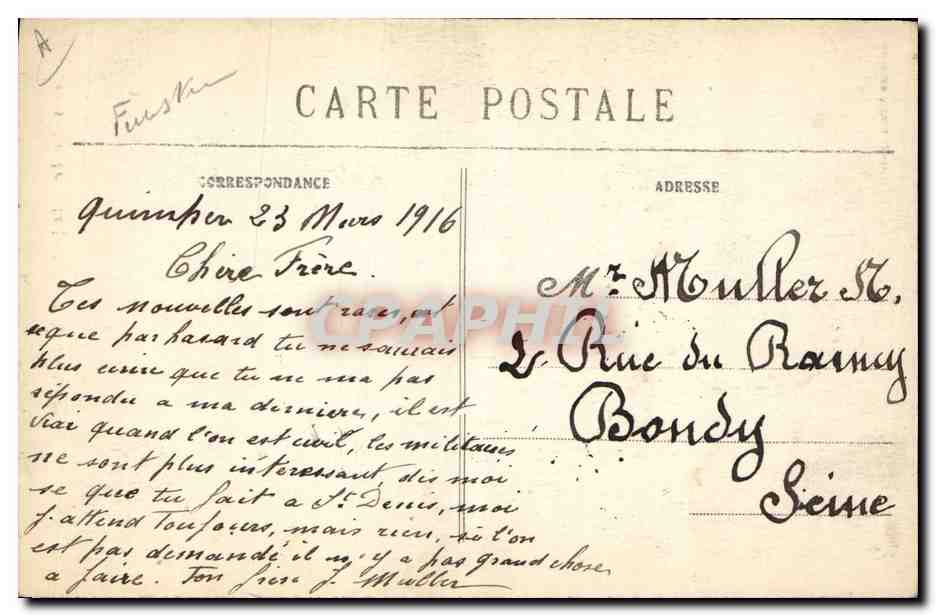 A
CARTE POSTALE
CORRESPONDANCE
ADRESSE
Quimper 23 Mars 1916
Chère Frère.
Tes nouvelles sont rares, est
se que par hasard tu ne saurais
plus écrire que tu ne ma pas
répondu a ma dernière, il est
vrai quand l'on est civil, les militaires
ne sont plus intéressant, dis moi
se que tu fait a St Denis, moi
j'attend toujours, mais rien, si l'on
est pas demandé il n'y a pas grand chose
a faire. Ton frère J. Muller
Mr. Muller N.
2 Rue du Raincy
Bondy
Seine
CPAPHIL